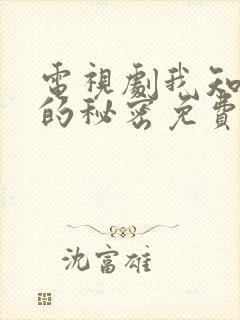 電視劇我知
的秘密免費
沈富雄